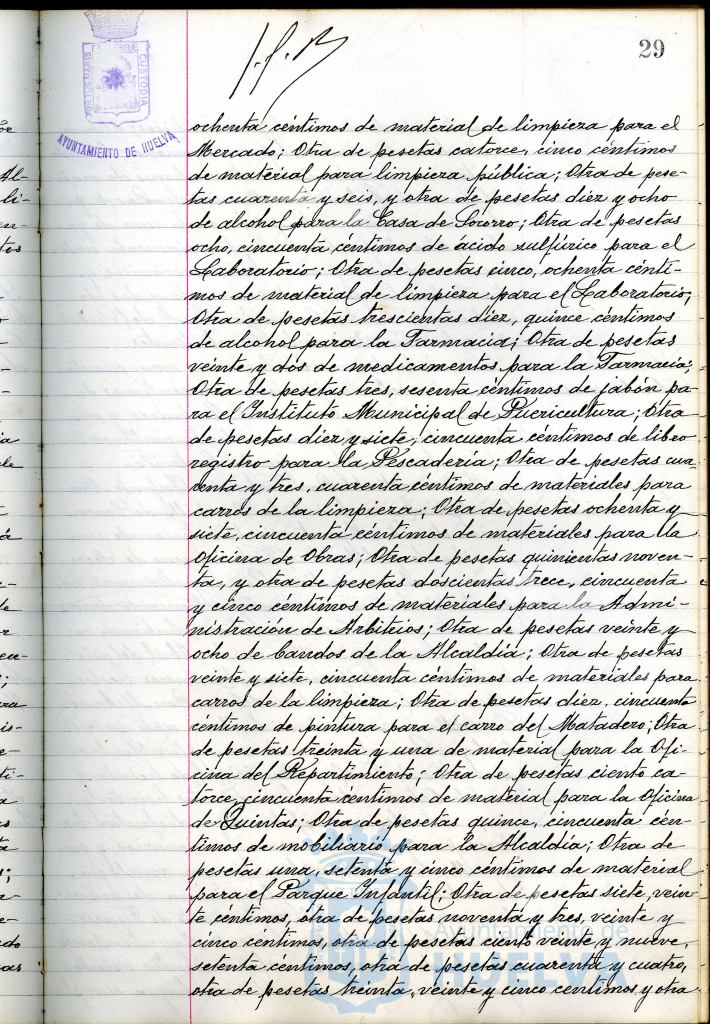 29
PORTUS MARIS
CUSTODIA
AYUNTAMIENTO DE HUELVA
ochenta céntimos de material de limpieza para el
Mercado; Otra de pesetas catorce, cinco céntimos
de material para limpieza pública; Otra de pese-
tas cuarenta y seis, y otra de pesetas diez y ocho
de alcohol para la Casa de Socorro; Otra de pesetas
ocho, cincuenta céntimos de ácido sulfúrico para el
Laboratorio; Otra de pesetas cinco, ochenta cénti-
mos de material de limpieza para el Laboratorio;
Otra de pesetas trescientas diez, quince céntimos
de alcohol para la Farmacia; Otra de pesetas
veinte y dos de medicamentos para la Farmacia;
Otra de pesetas tres, sesenta céntimos de jabón pa-
ra el Instituto Municipal de Puericultura; Otra
de pesetas diez y siete, cincuenta céntimos de libro
registro para la Pescadería; Otra de pesetas cua-
renta y tres, cuarenta céntimos de materiales para
carros de la limpieza; Otra de pesetas ochenta y
siete, cincuenta céntimos de materiales para la
Oficina de Obras; Otra de pesetas quinientas noven-
ta, y otra de pesetas doscientas trece, cincuenta
y cinco céntimos de materiales para la Admi-
nistración de Arbitrios; Otra de pesetas veinte y
ocho de bandos de la Alcaldía; Otra de pesetas
veinte y siete, cincuenta céntimos de materiales para
carros de la limpieza; Otra de pesetas diez, cincuenta
céntimos de pintura para el carro del Matadero; Otra
de pesetas treinta y una de material para la Ofi-
cina del Repartimiento; Otra de pesetas ciento ca-
torce, cincuenta céntimos de material para la Oficina
de Quintas; Otra de pesetas quince, cincuenta cén-
timos de mobiliario para la Alcaldía; Otra de
pesetas una, setenta y cinco céntimos de material
para el Parque Infantil; Otra de pesetas siete, vein-
te céntimos, otra de pesetas noventa y tres, veinte y
cinco céntimos, otra de pesetas ciento veinte y nueve,
setenta céntimos, otra de pesetas cuarenta y cuatro,
otra de pesetas treinta, veinte y cinco céntimos y otra
Ayuntamiento de
HUELVA